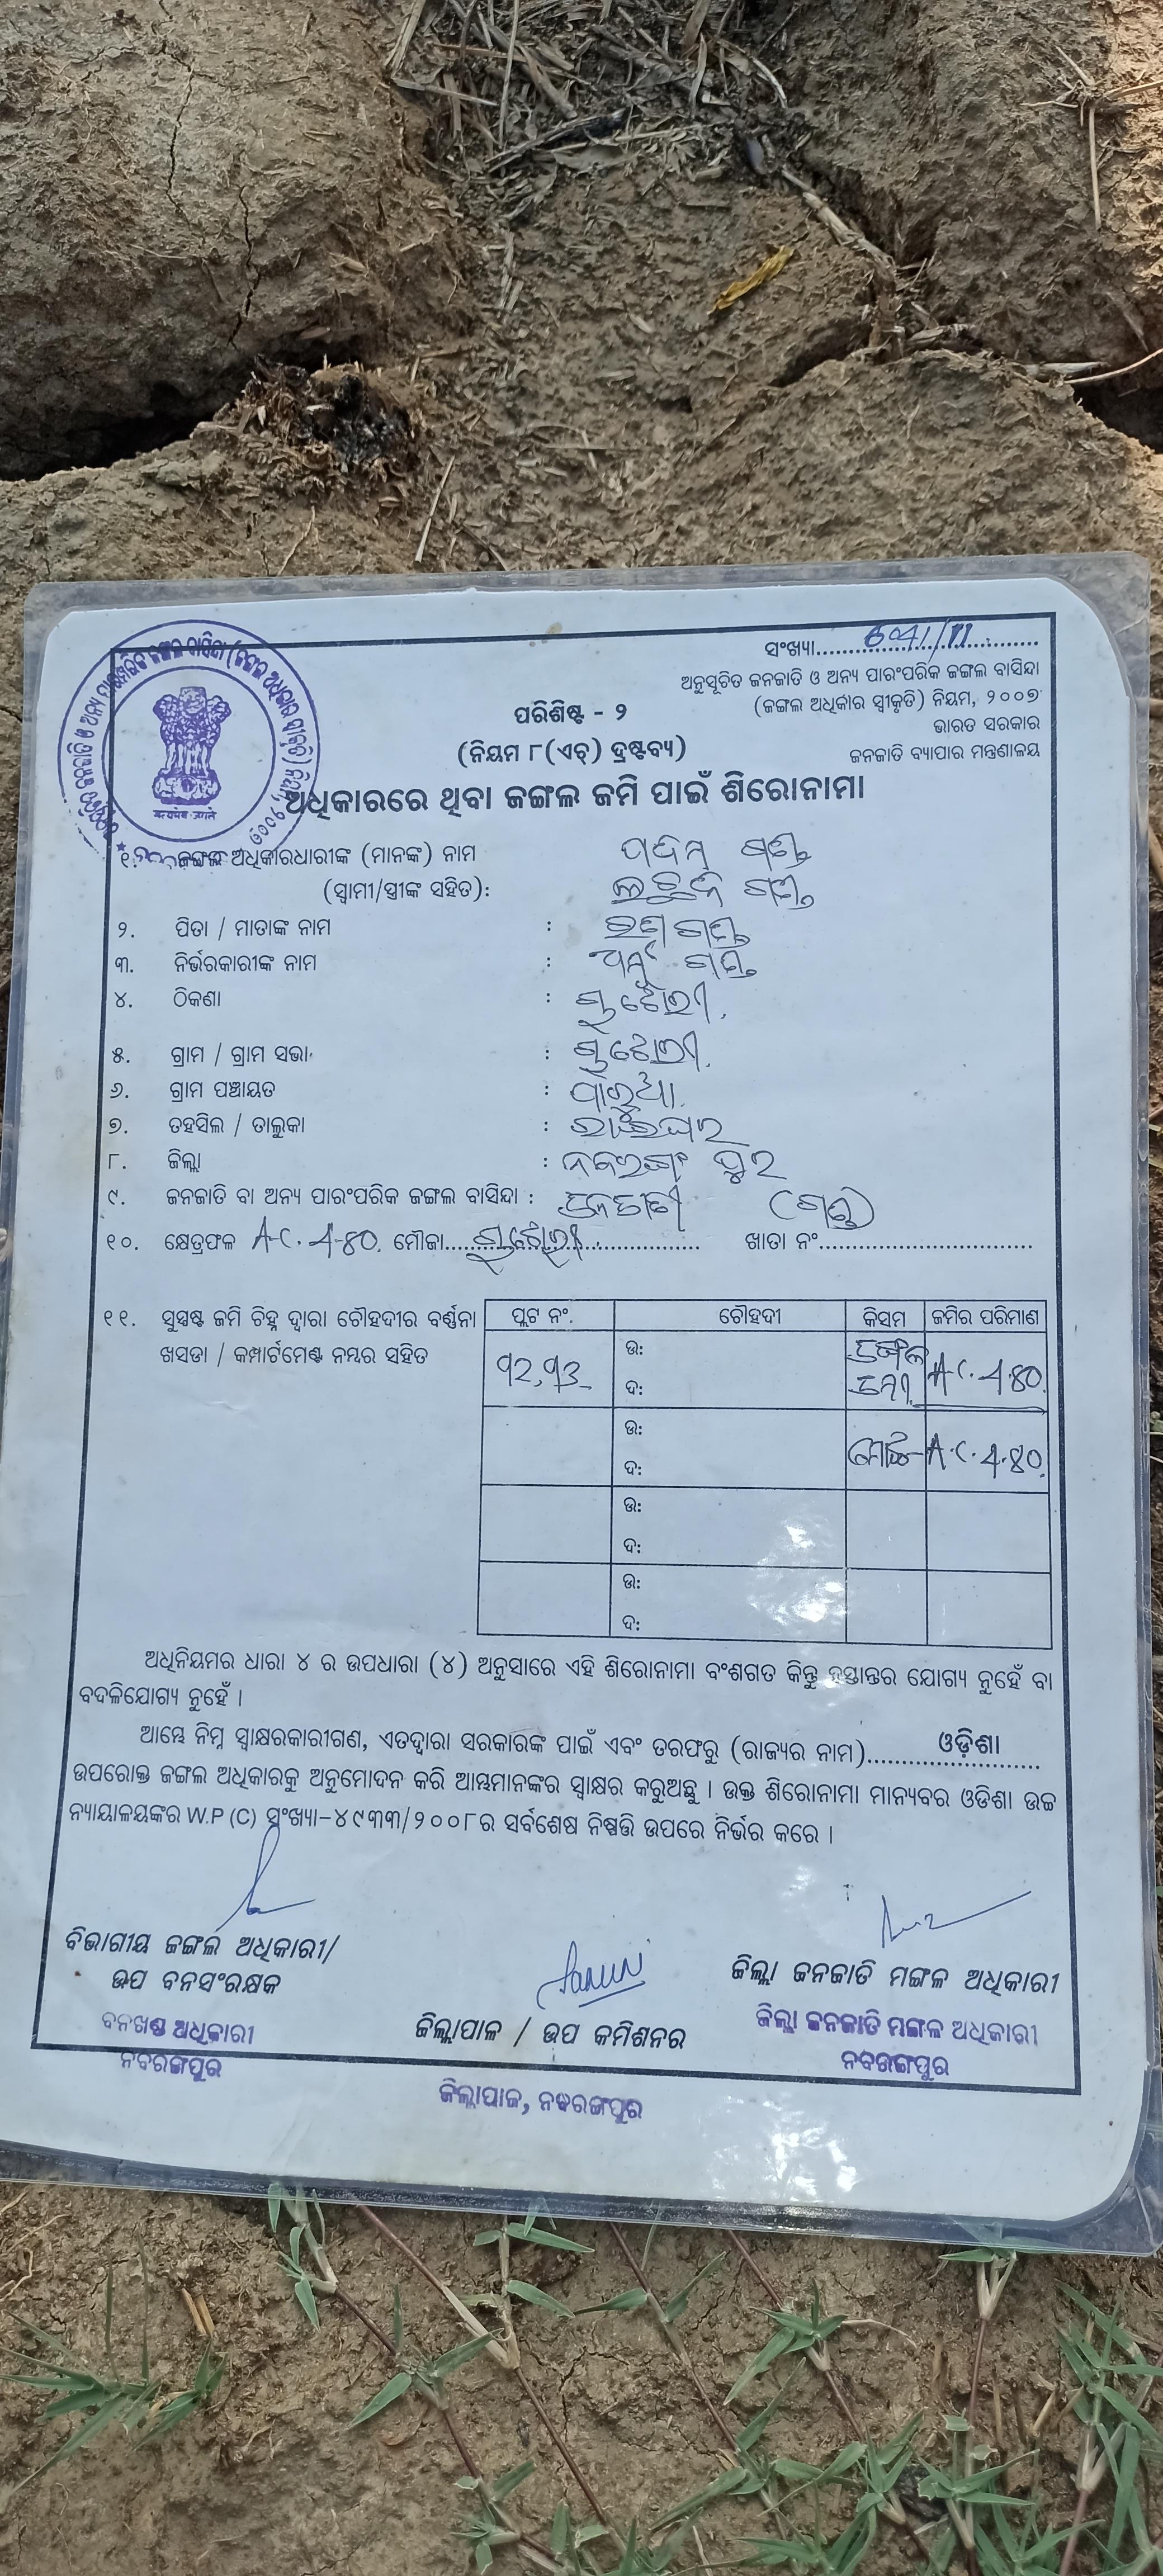 ସଂଖ୍ୟା..............................
ଅନୁସୂଚିତ ଜନଜାତି ଓ ଅନ୍ୟ ପାରଂପରିକ ଜଙ୍ଗଲ ବାସିନ୍ଦା
(ଜଙ୍ଗଲ ଅଧିକାର ସ୍ୱୀକୃତି) ନିୟମ, ୨୦୦୭
ଭାରତ ସରକାର
ଜନଜାତି ବ୍ୟାପାର ମନ୍ତ୍ରଣାଳୟ
ପରିଶିଷ୍ଟ - ୨
(ନିୟମ ୮(ଏଚ୍) ଦ୍ରଷ୍ଟବ୍ୟ)
ଅଧିକାରରେ ଥିବା ଜଙ୍ଗଲ ଜମି ପାଇଁ ଶିରୋନାମା
सत्यमेव जयते
୧. ଜଙ୍ଗଲ ଅଧିକାରଧାରୀଙ୍କ (ମାନଙ୍କ) ନାମ
(ସ୍ୱାମୀ/ସ୍ତ୍ରୀଙ୍କ ସହିତ):
୨. ପିତା / ମାତାଙ୍କ ନାମ :
୩. ନିର୍ଭରକାରୀଙ୍କ ନାମ :
୪. ଠିକଣା :
୫. ଗ୍ରାମ / ଗ୍ରାମ ସଭା :
୬. ଗ୍ରାମ ପଞ୍ଚାୟତ :
୭. ତହସିଲ / ତାଲୁକା : ରାଇଘର
୮. ଜିଲ୍ଲା : ନବରଙ୍ଗ ପୁର
୯. ଜନଜାତି ବା ଅନ୍ୟ ପାରଂପରିକ ଜଙ୍ଗଲ ବାସିନ୍ଦା : ଜନଜାତୀ (ଗଣ୍ଡ)
୧୦. କ୍ଷେତ୍ରଫଳ A.C. 4.80. ମୌଜା.............................. ଖାତା ନଂ..............................
୧୧. ସୁସ୍ପଷ୍ଟ ଜମି ଚିହ୍ନ ଦ୍ୱାରା ଚୌହଦୀର ବର୍ଣ୍ଣନା
ଖସଡା / କମ୍ପାର୍ଟମେଣ୍ଟ ନମ୍ବର ସହିତ
ପ୍ଲଟ ନଂ. ଚୌହଦୀ କିସମ ଜମିର ପରିମାଣ
ଉ: ଜଙ୍ଗଲ
ଦ: ଜମୀ A.C. 4.80.
ଉ:
ଦ: ମୋଟ- A.C. 4.80.
ଉ:
ଦ:
ଉ:
ଦ:
ଅଧିନିୟମର ଧାରା ୪ ର ଉପଧାରା (୪) ଅନୁସାରେ ଏହି ଶିରୋନାମା ବଂଶଗତ କିନ୍ତୁ ହସ୍ତାନ୍ତର ଯୋଗ୍ୟ ନୁହେଁ ବା
ବଦଳିଯୋଗ୍ୟ ନୁହେଁ ।
ଆମ୍ଭେ ନିମ୍ନ ସ୍ୱାକ୍ଷରକାରୀଗଣ, ଏତଦ୍ୱାରା ସରକାରଙ୍କ ପାଇଁ ଏବଂ ତରଫରୁ (ରାଜ୍ୟର ନାମ)......ଓଡ଼ିଶା......
ଉପରୋକ୍ତ ଜଙ୍ଗଲ ଅଧିକାରକୁ ଅନୁମୋଦନ କରି ଆମ୍ଭମାନଙ୍କର ସ୍ୱାକ୍ଷର କରୁଅଛୁ । ଉକ୍ତ ଶିରୋନାମା ମାନ୍ୟବର ଓଡିଶା ଉଚ୍ଚ
ନ୍ୟାୟାଳୟଙ୍କର W.P (C) ସଂଖ୍ୟା-୪୯୩୩/୨୦୦୮ର ସର୍ବଶେଷ ନିଷ୍ପତ୍ତି ଉପରେ ନିର୍ଭର କରେ ।
ବିଭାଗୀୟ ଜଙ୍ଗଲ ଅଧିକାରୀ/
ଉପ ବନସଂରକ୍ଷକ
ବନଖଣ୍ଡ ଅଧିକାରୀ
ନବରଙ୍ଗପୁର
ଜିଲ୍ଲାପାଳ / ଉପ କମିଶନର
ଜିଲ୍ଲାପାଳ, ନବରଙ୍ଗପୁର
ଜିଲ୍ଲା ଜନଜାତି ମଙ୍ଗଳ ଅଧିକାରୀ
ଜିଲ୍ଲା ଜନଜାତି ମଙ୍ଗଳ ଅଧିକାରୀ
ନବରଙ୍ଗପୁର